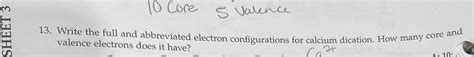 10 Core 5 Valence
SHEET 3
13. Write the full and abbreviated electron configurations for calcium dication. How many core and
valence electrons does it have?
Ca2+